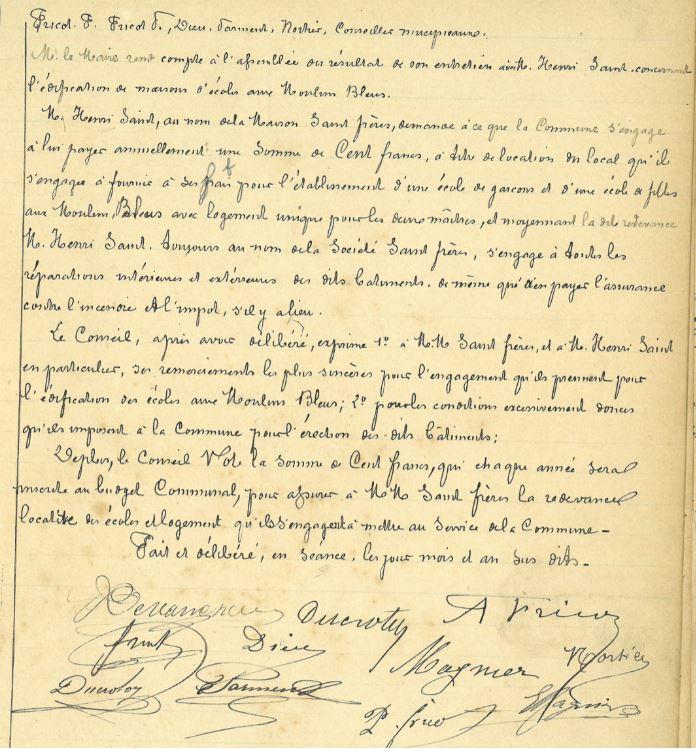 Fricot. F. Fricot F., Dieu. Sarment, Nortier, Conseillers municipaux.
Mr. le Maire rend compte à l'assemblée du résultat de son entretien avec M. Henri Saint. concernant
l'édification de maisons d'écoles aux Moulins Bleus.
M. Henri Saint, au nom de la Maison Saint frères, demande à ce que la Commune s'engage
à lui payer annuellement une somme de Cent francs, à titre de location du local qu'il
s'engage à fournir à ses frais pour l'établissement d'une école de garçons et d'une école de filles
aux Moulins Bleus avec logement unique pour les deux maîtres, et moyennant la dite redevance
M. Henri Saint. toujours au nom de la Société Saint frères, s'engage à toutes les
réparations intérieures et extérieures des dits bâtiments. de même qu'à en payer l'assurance
contre l'incendie et l'impôt, s'il y a lieu.
Le Conseil, après avoir délibéré, exprime 1º à M.M Saint frères, et à M. Henri Saint
en particulier, ses remerciements les plus sincères pour l'engagement qu'ils prennent pour
l'édification des écoles aux Moulins Bleus; 2º pour les conditions excessivement douces
qu'ils imposent à la Commune pour l'érection des-dits bâtiments;
De plus, le Conseil Vote la somme de Cent francs, qui chaque année sera
inscrite au budget Communal, pour assurer à M.M Saint frères la redevance
locative des écoles et logement qu'ils s'engagent à mettre au service de la Commune -
Fait et délibéré, en séance, les jour mois et an sus dits -
Ducrotoy A Fricot
Dieu Magnier Nortier
Ducrotoy Sarment
P. frico Magnier